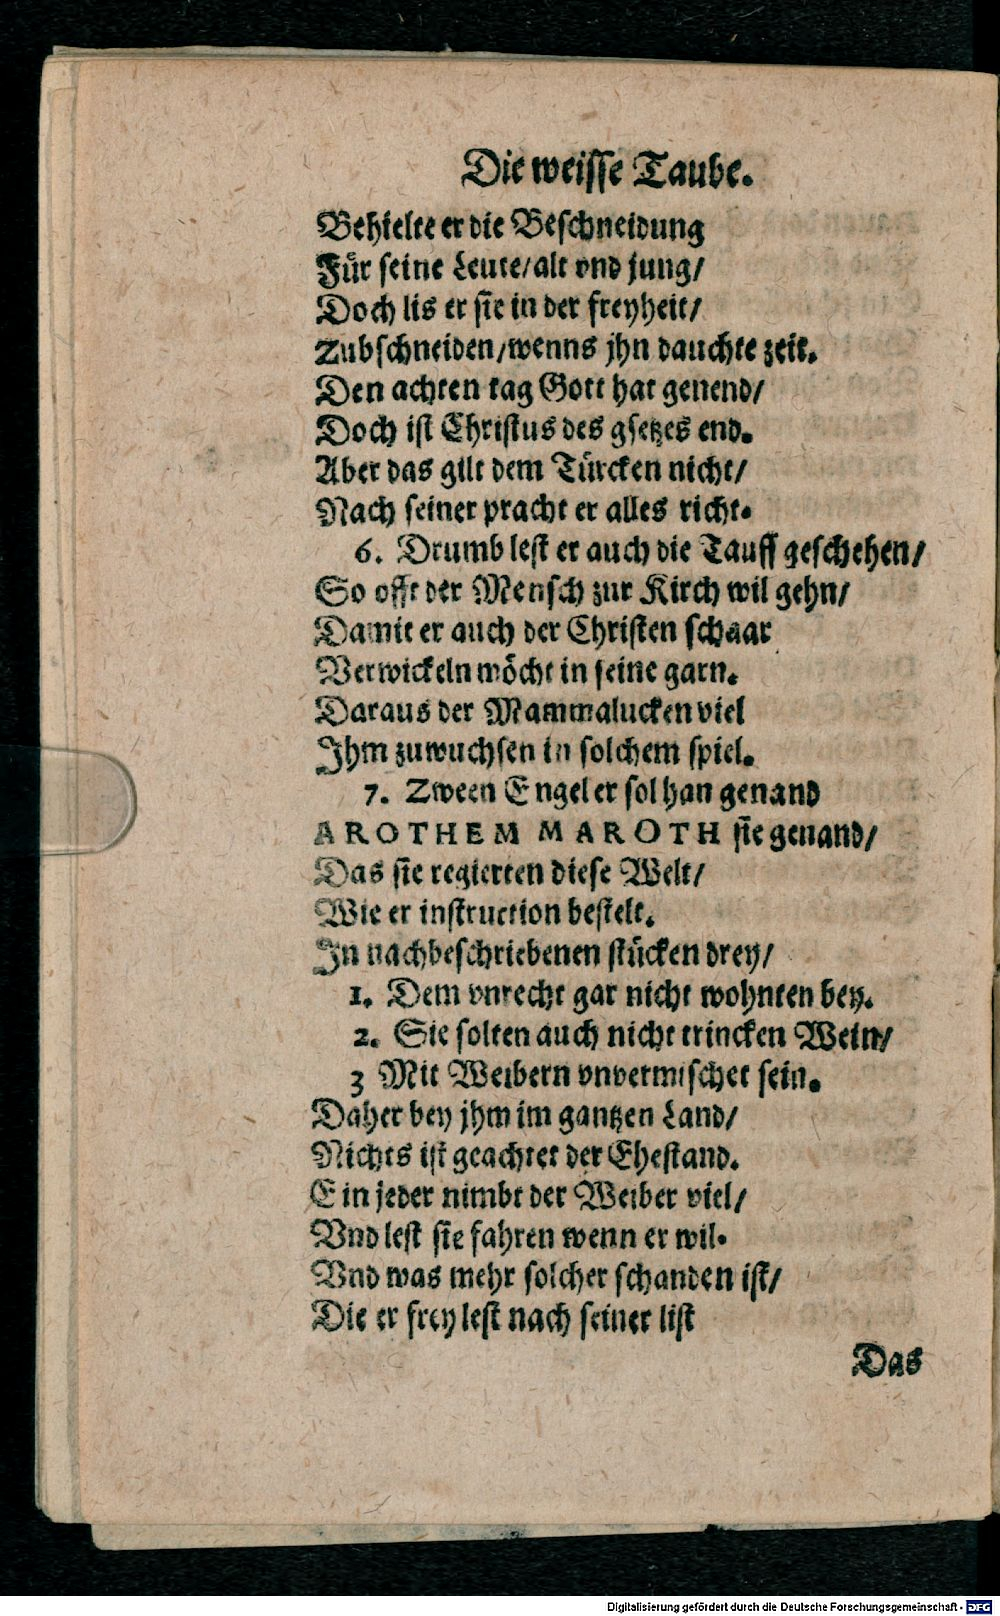 Die weisse Taube.
Behielte er die Beschneidung
Für seine Leute/alt vnd jung/
Doch lis er sie in der freyheit/
Zubschneiden/wenns jhn dauchte zeit.
Den achten tag Gott hat genend/
Doch ist Christus des gsetzes end.
Aber das gilt dem Türcken nicht/
Nach seiner pracht er alles richt.
6. Drumb lest er auch die Tauff geschehen/
So offt der Mensch zur Kirch wil gehn/
Damit er auch der Christen schaar
Verwickeln möcht in seine garn.
Daraus der Mammalucken viel
Ihm zuwuchsen in solchem spiel.
7. Zween Engel er sol han genand
AROTHEM MAROTH sie genand/
Das sie regierten diese Welt/
Wie er instruction bestelt.
In nachbeschriebenen stücken drey/
1. Dem vnrecht gar nicht wohnten bey.
2. Sie solten auch nicht trincken Wein/
3 Mit Weibern vnvermischet sein.
Daher bey jhm im gantzen Land/
Nichts ist geachtet der Ehestand.
Ein jeder nimbt der Weiber viel/
Vnd lest sie fahren wenn er wil.
Vnd was mehr solcher schanden ist/
Die er frey lest nach seiner list
Das
Digitalisierung gefördert durch die Deutsche Forschungsgemeinschaft - DFG